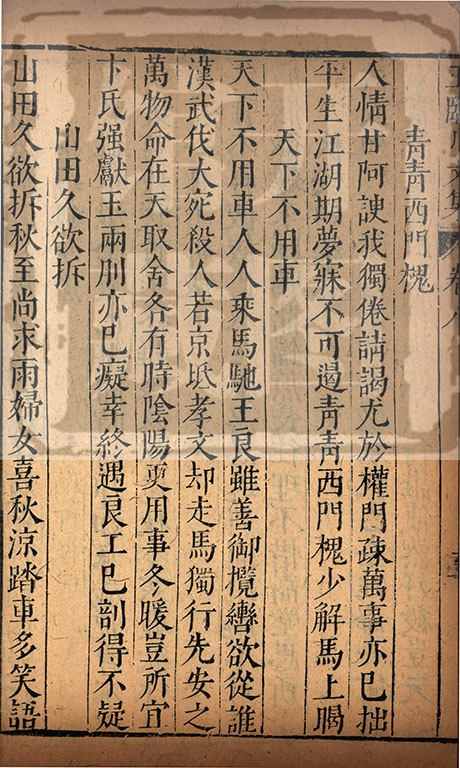 王臨川文集 卷八
青青西門槐
人情甘阿諛我獨倦請謁尤於權門疎萬事亦已拙
平生江湖期夢寐不可遏青青西門槐少解馬上暍
天下不用車
天下不用車人人乘馬馳王良雖善御攬轡欲從誰
漢武伐大宛殺人若京坻孝文却走馬獨行先安之
萬物命在天取舍各有時陰陽更用事冬暖豈所宜
卞氏强獻玉兩刖亦已癡幸終遇良工已剖得不疑
山田久欲拆
山田久欲拆秋至尚求雨婦女喜秋涼踏車多笑語